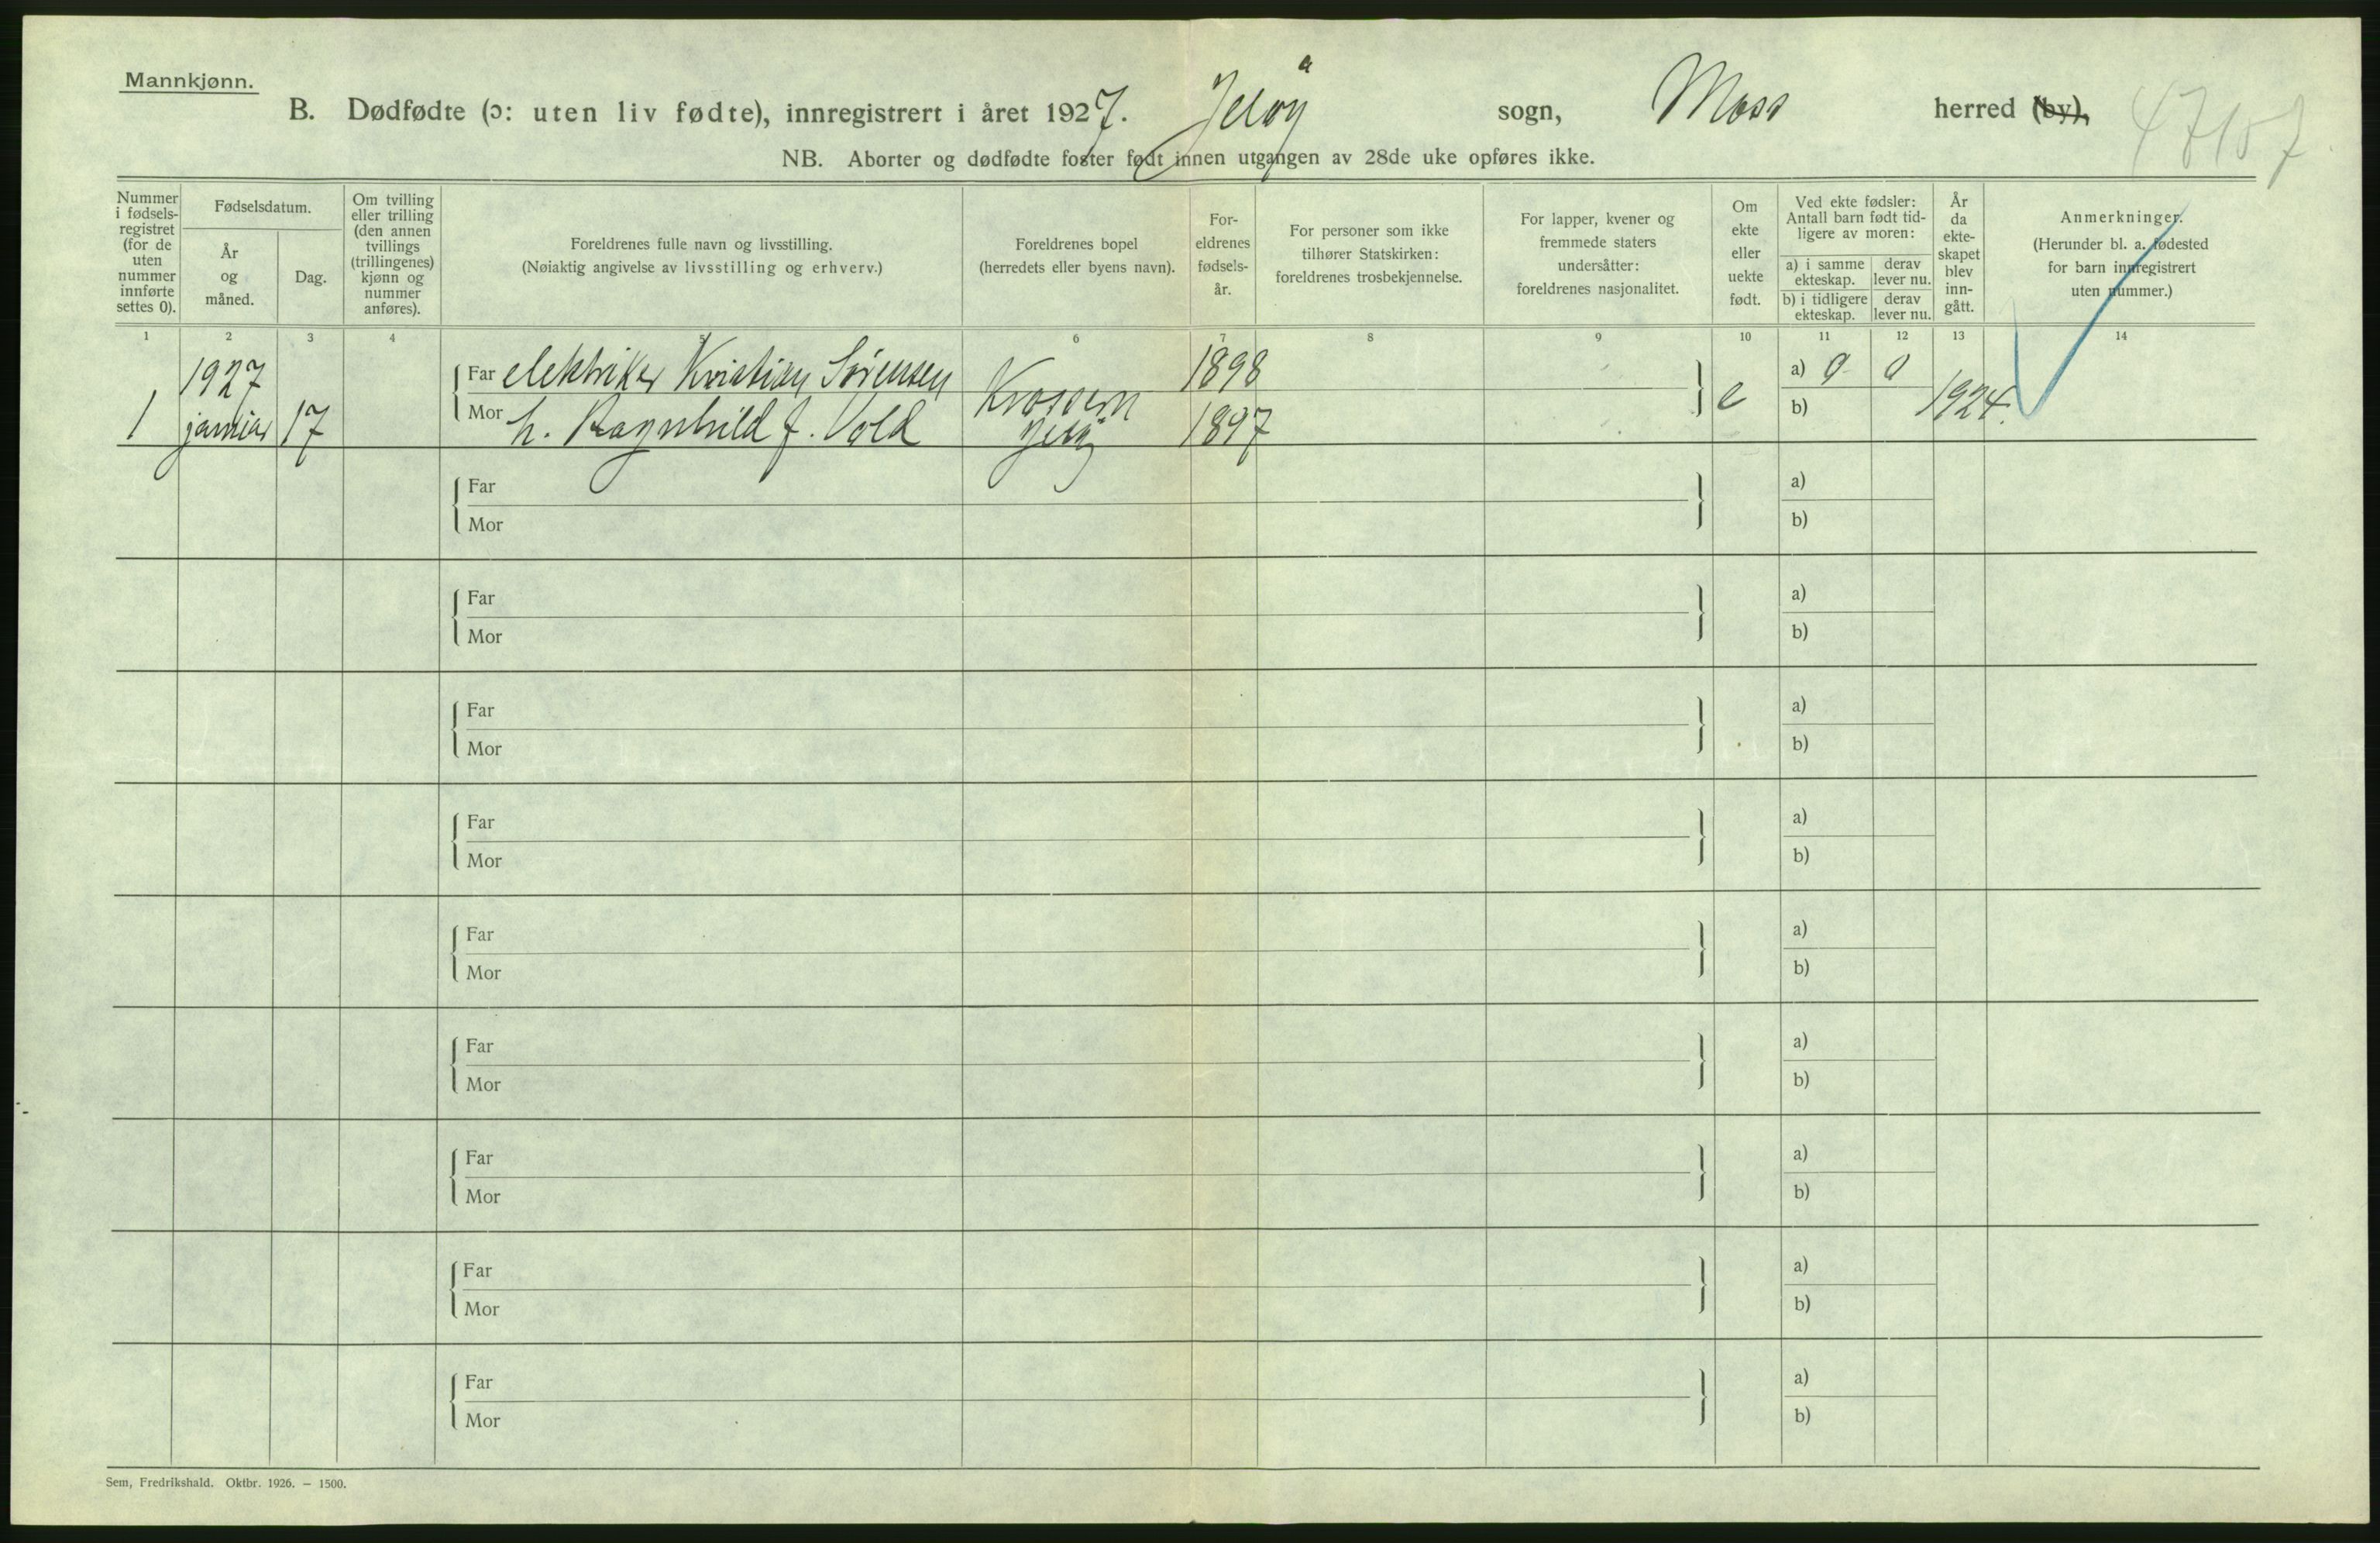 Mannkjønn.
B. Dødfødte (ɔ: uten liv fødte), innregistrert i året 1927. Jeløy sogn, Moss herred (by),
NB. Aborter og dødfødte foster født innen utgangen av 28de uke opføres ikke.
Nummer i fødsels-registret (for de uten nummer innførte settes 0).
Fødselsdatum.
År og måned.
Dag.
Om tvilling eller trilling (den annen tvillings (trillingenes) kjønn og nummer anføres).
Foreldrenes fulle navn og livsstilling.
(Nøiaktig angivelse av livsstilling og erhverv.)
Foreldrenes bopel
(herredets eller byens navn).
For-eldrenes fødsels-år.
For personer som ikke tilhører Statskirken: foreldrenes trosbekjennelse.
For lapper, kvener og fremmede staters undersåtter: foreldrenes nasjonalitet.
Om ekte eller uekte født.
Ved ekte fødsler: Antall barn født tid-ligere av moren:
a) i samme ekteskap.
derav lever nu.
b) i tidligere ekteskap.
derav lever nu.
År da ekte-skapet blev inn-gått.
Anmerkninger.
(Herunder bl. a. fødested for barn innregistrert uten nummer.)
1 2 3 4 5 6 7 8 9 10 11 12 13 14
1927 Far elektriker Kristian Sørensen 1898 a) 0 0
1 januar 17 Mor h. Ragnhild f. Vold Krossern Jeløy 1897 e b) 1924.
Far a)
Mor b)
Far a)
Mor b)
Far a)
Mor b)
Far a)
Mor b)
Far a)
Mor b)
Far a)
Mor b)
Far a)
Mor b)
Far a)
Mor b)
Far a)
Mor b)
Sem, Fredrikshald. Oktbr. 1926. — 1500.